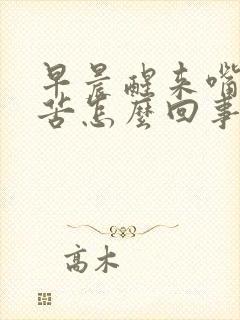 早晨醒来嘴
苦怎麼回事
高木